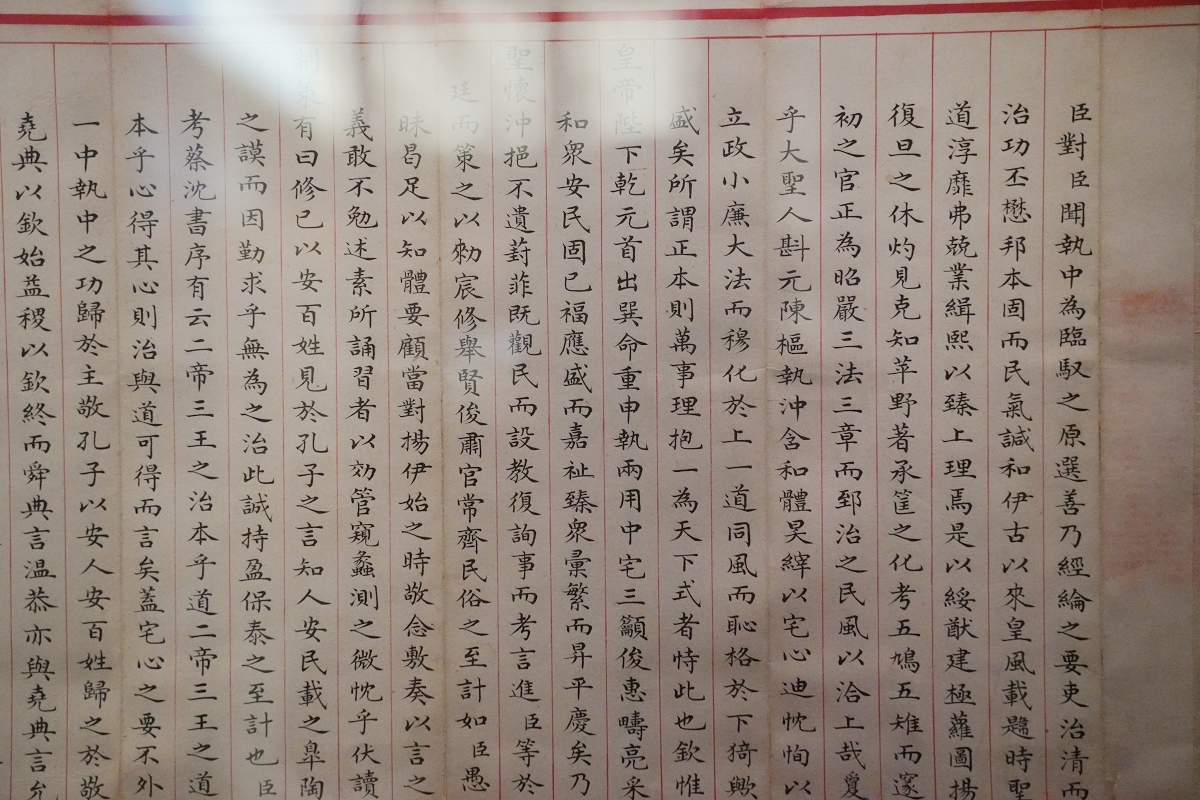 臣對臣聞執中為臨馭之原選善乃經綸之要吏治清而
治功丕懋邦本固而民氣諴和伊古以來皇風載颺時聖
道淳靡弗兢業緝熙以臻上理焉是以綏猷建極蘿圖揚
復旦之休灼見克知苹野著承筐之化考五鳩五雉而邃
初之官正為昭嚴三法三章而郅治之民風以洽上哉夐
乎大聖人斟元陳樞執沖含和體昊縡以宅心迪忱恂以
立政小廉大法而穆化於上一道同風而恥格於下猗歟
盛矣所謂正本則萬事理抱一為天下式者恃此也欽惟
皇帝陛下乾元首出巽命重申執兩用中宅三籲俊惠疇亮采
和眾安民固已福應盛而嘉祉臻眾彙繁而昇平慶矣乃
聖懷沖挹不遺葑菲既觀民而設教復詢事而考言進臣等於
廷而策之以勑宸修舉賢俊肅官常齊民俗之至計如臣愚
昧曷足以知體要顧當對揚伊始之時敬念敷奏以言之
義敢不勉述素所誦習者以効管窺蠡測之微忱乎伏讀
制策有曰修已以安百姓見於孔子之言知人安民載之臯陶
之謨而因勤求乎無為之治此誠持盈保泰之至計也臣
考蔡沈書序有云二帝三王之治本乎道二帝三王之道
本乎心得其心則治與道可得而言矣蓋宅心之要不外
一中執中之功歸於主敬孔子以安人安百姓歸之於敬
堯典以欽始益稷以欽終而舜典言温恭亦與堯典言允